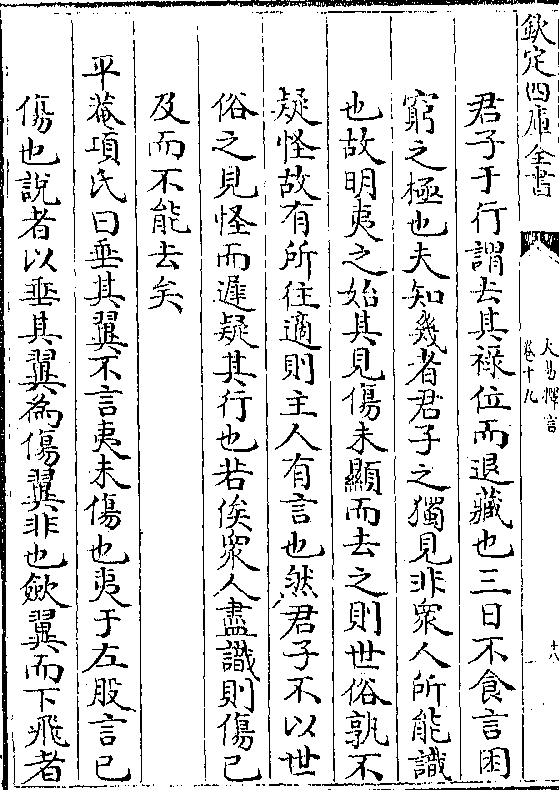 欽定四庫全書
大易擇言
卷十九
十八
君子于行謂去其祿位而退藏也三日不食言困
窮之極也夫知幾者君子之獨見非衆人所能識
也故明夷之始其見傷未顯而去之則世俗孰不
疑怪故有所往適則主人有言也然君子不以世
俗之見怪而遲疑其行也若俟衆人盡識則傷已
及而不能去矣
平菴項氏曰垂其翼不言夷未傷也夷于左股言已
傷也說者以垂其翼為傷翼非也斂翼而下飛者